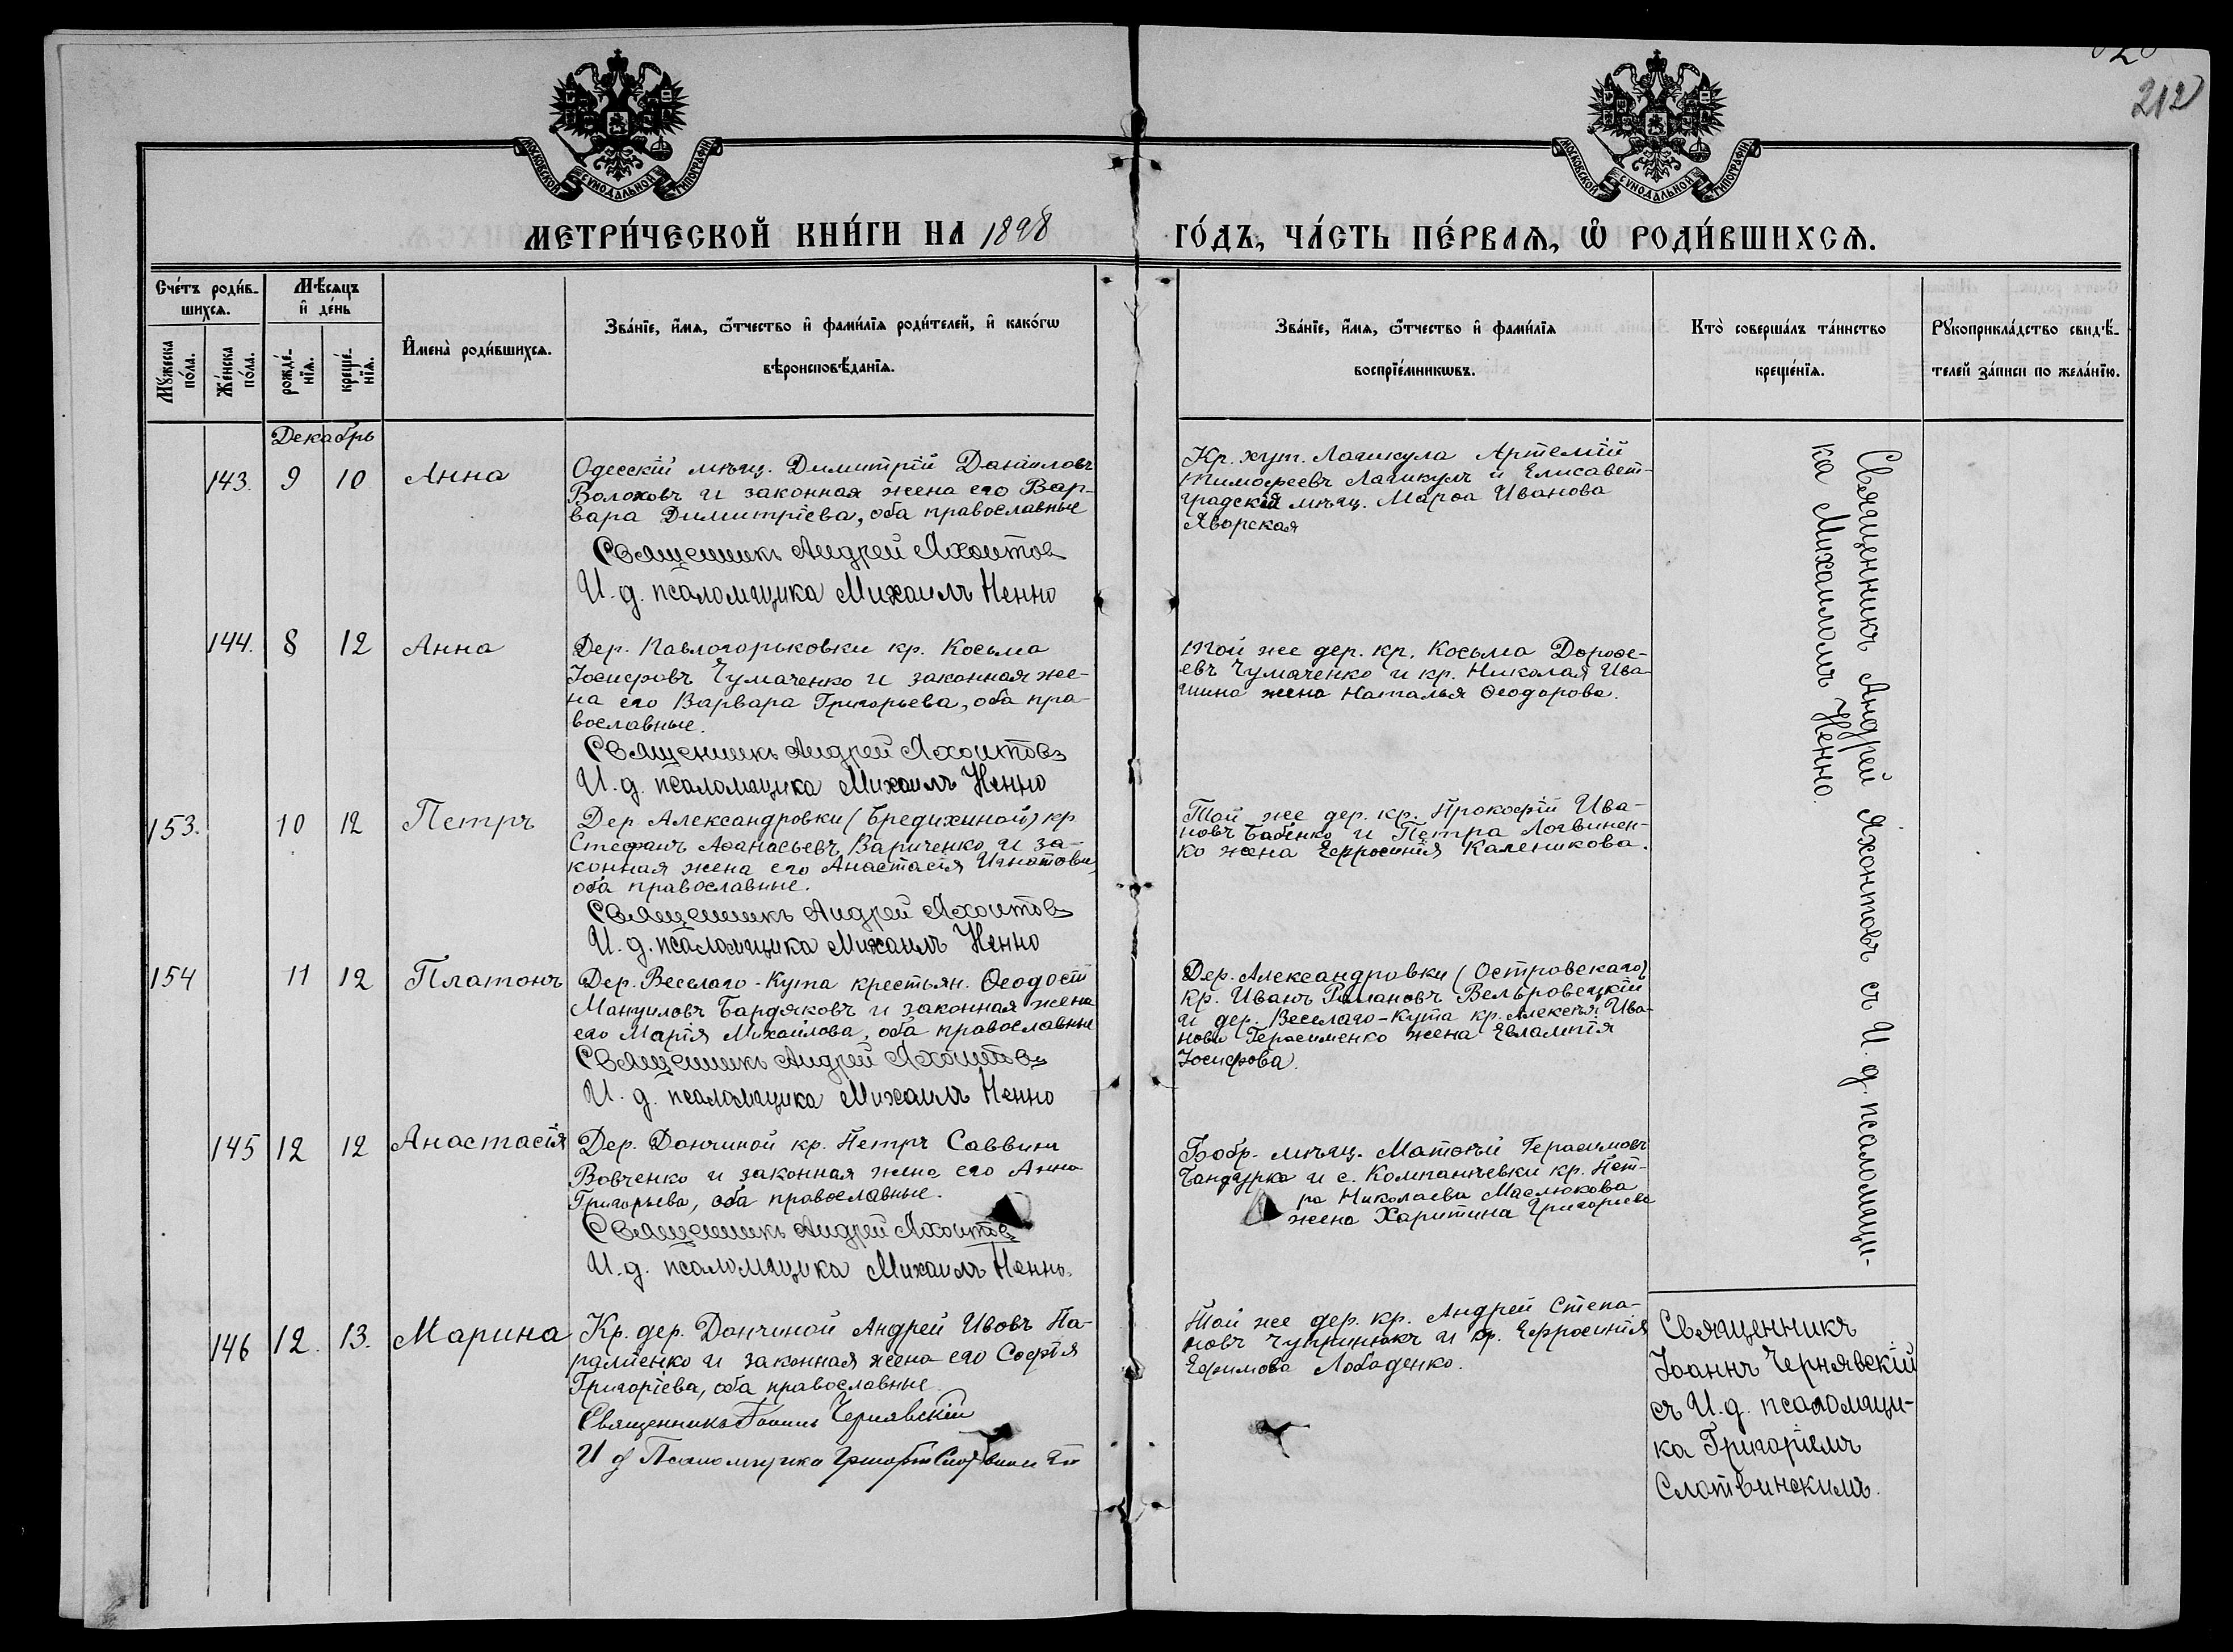 212
МОСКОВСКОЙ СѴНОДАЛЬНОЙ ТИПОГРАФІИ
МОСКОВСКОЙ СѴНОДАЛЬНОЙ ТИПОГРАФІИ
МЕТРИ́ЧЕСКОЙ КНИ́ГИ НА 1898
ГО́ДЪ, ЧА́СТЬ ПЕ́РВАѦ, Ѡ҆ РОДИ́ВШИХСѦ.
Сче́тъ роди́в-
шихсѧ.
Мꙋ́жеска по́ла.
Же́нска по́ла.
Мѣ́сѧцъ
и҆ де́нь
рожде́-
нїѧ.
креще́-
нїѧ.
И҆мена̀ роди́вшихсѧ.
Зва́нїе, и҆́мѧ, ѻ҆́тчество и҆ фами́лїѧ роди́телей, и҆ како́гѡ
вѣроисповѣ́данїѧ.
Зва́нїе, и҆́мѧ, ѻ҆́тчество и҆ фами́лїѧ
воспрїе́мникѡвъ.
Кто̀ соверша́лъ та́инство
креще́нїѧ.
Рꙋкоприкла́дство свидѣ́-
телей за́писи по жела́нїю.
Декабрь
143. 9 10 Анна
Одесскій мѣщ. Димитрій Даниловъ
Волоховъ и законная жена его Вар-
вара Димитріева, оба православные
Священникъ Андрей Яхонтов
И. д. псаломщика Михаилъ Ненно
Кр. хут. Лашкула Артемій
Тимофеевъ Лашкулъ и Елисавет-
градскія мѣщ. Марѳа Иванова
Яворская
144. 8 12 Анна
Дер. Павлогорьковки кр. Косьма
Іосифовъ Чумаченко и законная же-
на его Варвара Григорьева, оба пра-
вославные.
Священникъ Андрей Яхонтовъ
И. д. псаломщика Михаилъ Ненно
Той же дер. кр. Косьма Дороѳе-
евъ Чумаченко и кр. Николая Ива-
шина жена Наталья Ѳеодорова.
153. 10 12 Петръ
Дер. Александровки (Бредихиной) кр
Стефанъ Аѳанасьевъ Вариченко и за-
конная жена его Анастасія Игнатова,
оба православные.
Священникъ Андрей Яхонтов
И. д. псаломщика Михаилъ Ненно
Той же дер. кр. Прокофій Ива-
новъ Бабенко и Петра Логвинен-
ко жена Ефросинія Каленикова.
154 11 12 Платонъ
Дер. Веселаго-Кута крестьян. Ѳеодосій
Мануиловъ Бардяковъ и законная жена
его Марія Михайлова, оба православные
Священникъ Андрей Яхонтовъ
И. д. псаломщика Михаилъ Ненно
Дер. Александровки (Островскаго)
кр. Иванъ Романовъ Вельровецкій
и дер. Веселаго-Кута кр. Алексѣя Ива-
нова Герасименко жена Евлампія
Іосифова.
145 12 12 Анастасія
Дер. Дончиной кр. Петръ Саввинъ
Вовченко и законная жена его Анна
Григорьева, оба православные.
Священникъ Андрей Яхонтов
И. д. псаломщика Михаилъ Ненно.
Бобр. мѣщ. Матѳей Герасимовъ
Бандурка и с. Компанѣевки кр. Пет-
ра Николаева Маслюкова
жена Харитина Григорьева
Священникъ Андрей Яхонтовъ съ И. д. псаломщи-
ка Михаиломъ Ненно.
146 12. 13. Марина
Кр. дер. Дончиной Андрей Ивовъ Па-
ралиенко и законная жена его Софія
Григоріева, оба православные.
Священникъ Іоаннъ Чернявскій
И д Псаломщика Григорій
Той же дер. кр. Андрей Степа-
новъ Чупринюкъ и кр. Ефросинія
Ефимова Лободенко.
Священникъ
Іоаннъ Чернявскій
съ И. д. псаломщи-
ка Григоріемъ
Слотвинскимъ.